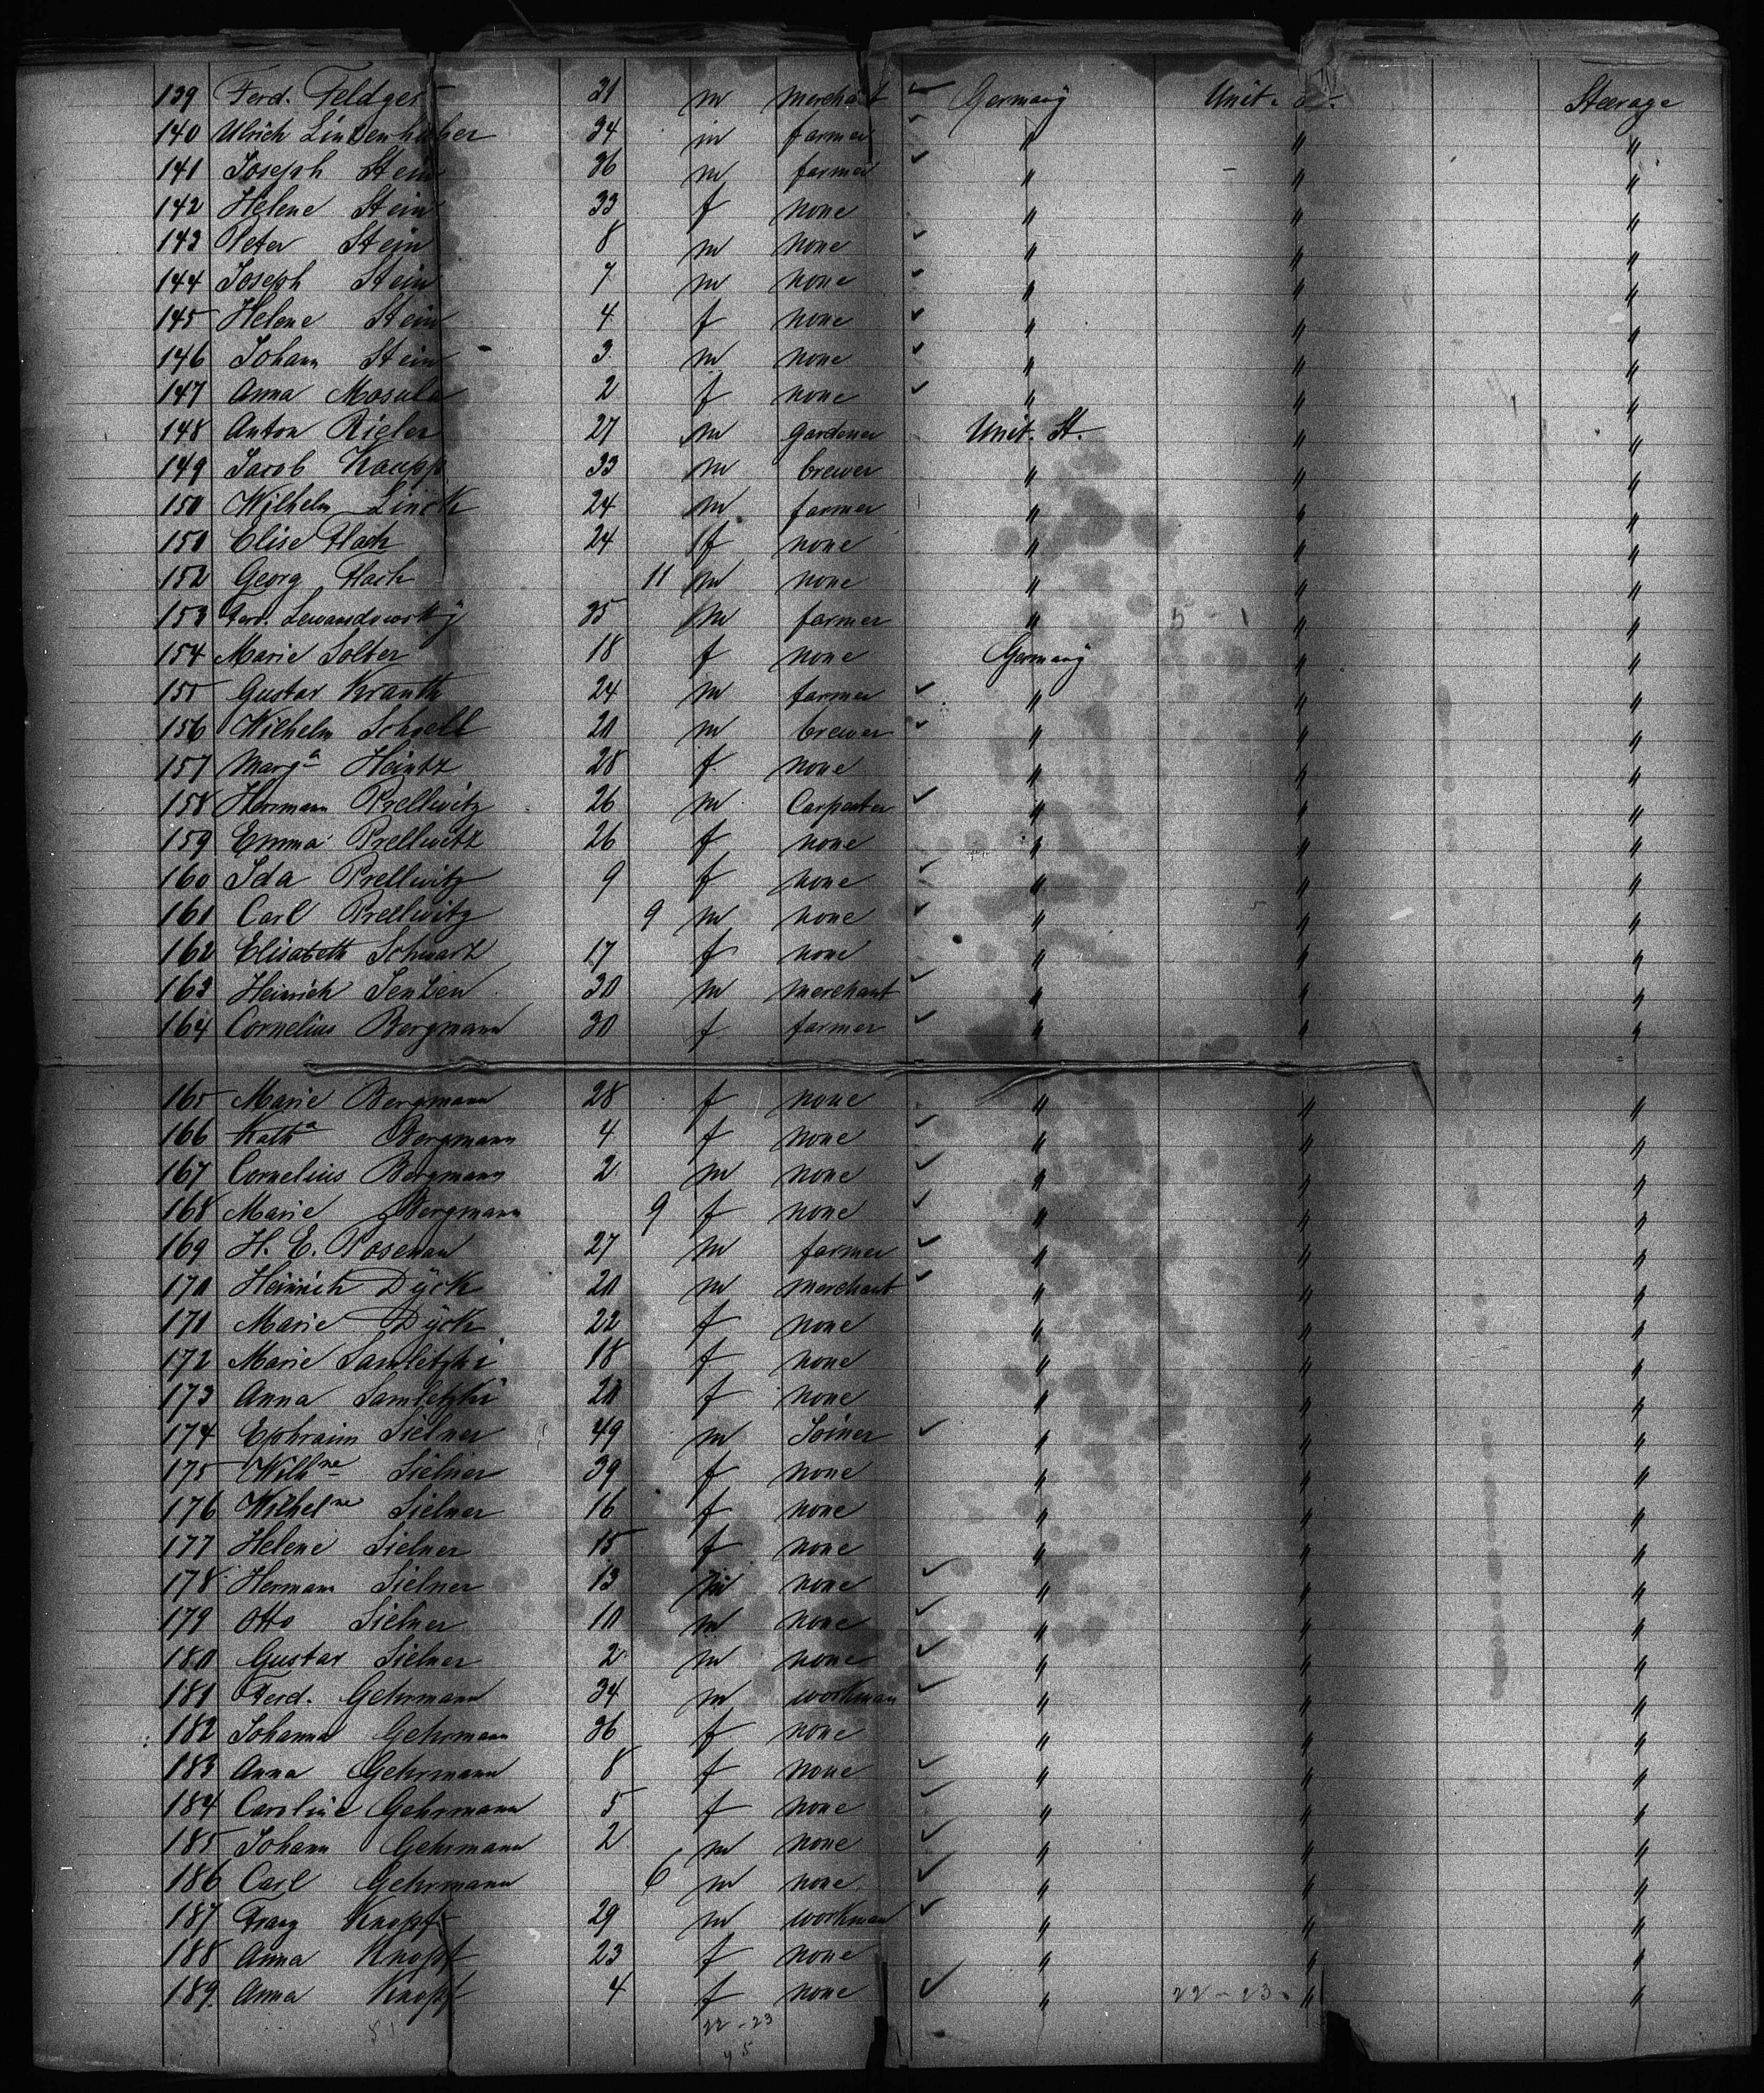 139 Ferd. Feldges 31 m merchant ✓ Germany Unit. S. Steerage
140 Ulrich 34 m farmer " " "
141 Joseph Stein 36 m farmer ✓ " " "
142 Helene Stein 33 f none " " "
143 Peter Stein 8 m none ✓ " " "
144 Joseph Stein 7 m none ✓ " " "
145 Helene Stein 4 f none ✓ " " "
146 Johann Stein 3 m none ✓ " " "
147 Anna Mosula 2 f none ✓ " " "
148 Anton Rieler 27 m gardener Unit. St. " "
149 Jacob Kaupp 33 m brewer " " "
150 Wilhelm Linck 24 m farmer " " "
151 Elise Hach 24 f none " " "
152 Georg Hach 11 m none " " "
153 Ferd. Lewandowsky 35 m farmer " 5 - 1 " "
154 Marie Solter 18 f none Germany " "
155 Gustav Kranth 24 m farmer ✓ " " "
156 Wilhelm Schnell 20 m brewer ✓ " " "
157 Marga Heintz 28 f none " " "
158 Herrmann Prellwitz 26 m Carpenter ✓ " " "
159 Emma Prellwitz 26 f none " " "
160 Ida Prellwitz 9 f none ✓ " " "
161 Carl Prellwitz 9 m none ✓ " " "
162 Elisabeth Schwartz 17 f none " " "
163 Heinrich Jentzen 30 m merchant ✓ " " "
164 Cornelius Bergmann 30 f farmer ✓ " " "
165 Marie Bergmann 28 f none " " "
166 Katha Bergmann 4 f none ✓ " " "
167 Cornelius Bergmann 2 m none ✓ " " "
168 Marie Bergmann 9 f none ✓ " " "
169 H. E. Posenau 27 m farmer ✓ " " "
170 Heinrich Dÿck 20 m merchant ✓ " " "
171 Marie Dÿck 22 f none " " "
172 Marie Samletzki 18 f none " " "
173 Anna Samletzki 20 f none " " "
174 Ephraim Sielner 49 m Joiner ✓ " " "
175 Willhne Sielner 39 f none " " "
176 Wilhelne Sielner 16 f none " " "
177 Helene Sielner 15 f none " " "
178 Hermann Sielner 13 m none ✓ " " "
179 Otto Sielner 10 m none ✓ " " "
180 Gustav Sielner 2 m none ✓ " " "
181 Ferd. Gehrmann 34 m workman ✓ " " "
182 Johanna Gehrmann 36 f none " " "
183 Anna Gehrmann 8 f none ✓ " " "
184 Caroline Gehrmann 5 f none ✓ " " "
185 Johann Gehrmann 2 m none ✓ " " "
186 Carl Gehrmann 6 m none ✓ " " "
187 Franz Knopf 29 m workman ✓ " " "
188 Anna Knopf 23 f none " " "
189. Anna Knopf 4 f none ✓ " 22 - 23 " "
51 22 - 23
45